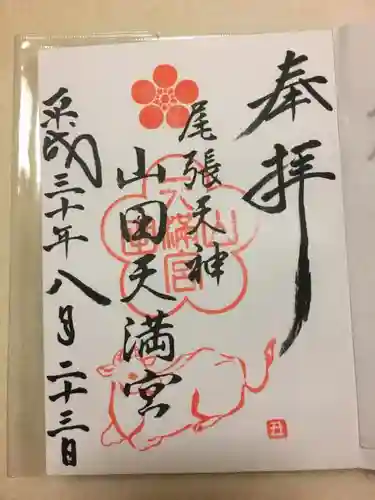 奉拝
尾張天神
山田天満宮
平成三十年八月二十三日
天満宮
山田
丑